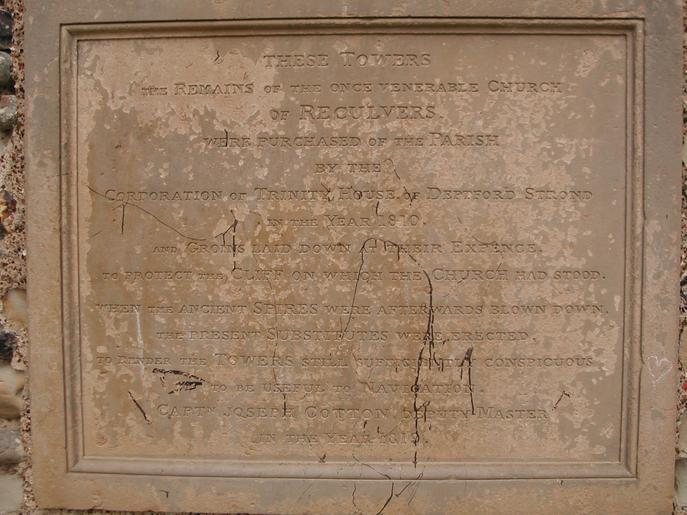 THESE TOWERS
THE REMAINS OF THE ONCE VENERABLE CHURCH
OF RECULVERS.
WERE PURCHASED OF THE PARISH
BY THE
CORPORATION OF TRINITY HOUSE OF DEPTFORD STROND
IN THE YEAR 1810.
AND GROINS LAID DOWN AT THEIR EXPENCE.
TO PROTECT THE CLIFF ON WHICH THE CHURCH HAD STOOD.
WHEN THE ANCIENT SPIRES WERE AFTERWARDS BLOWN DOWN.
THE PRESENT SUBSTITUTES WERE ERECTED,
TO RENDER THE TOWERS STILL SUFFICIENTLY CONSPICUOUS
TO BE USEFUL TO NAVIGATION.
CAPTN JOSEPH COTTON DEPUTY MASTER
IN THE YEAR 1819.